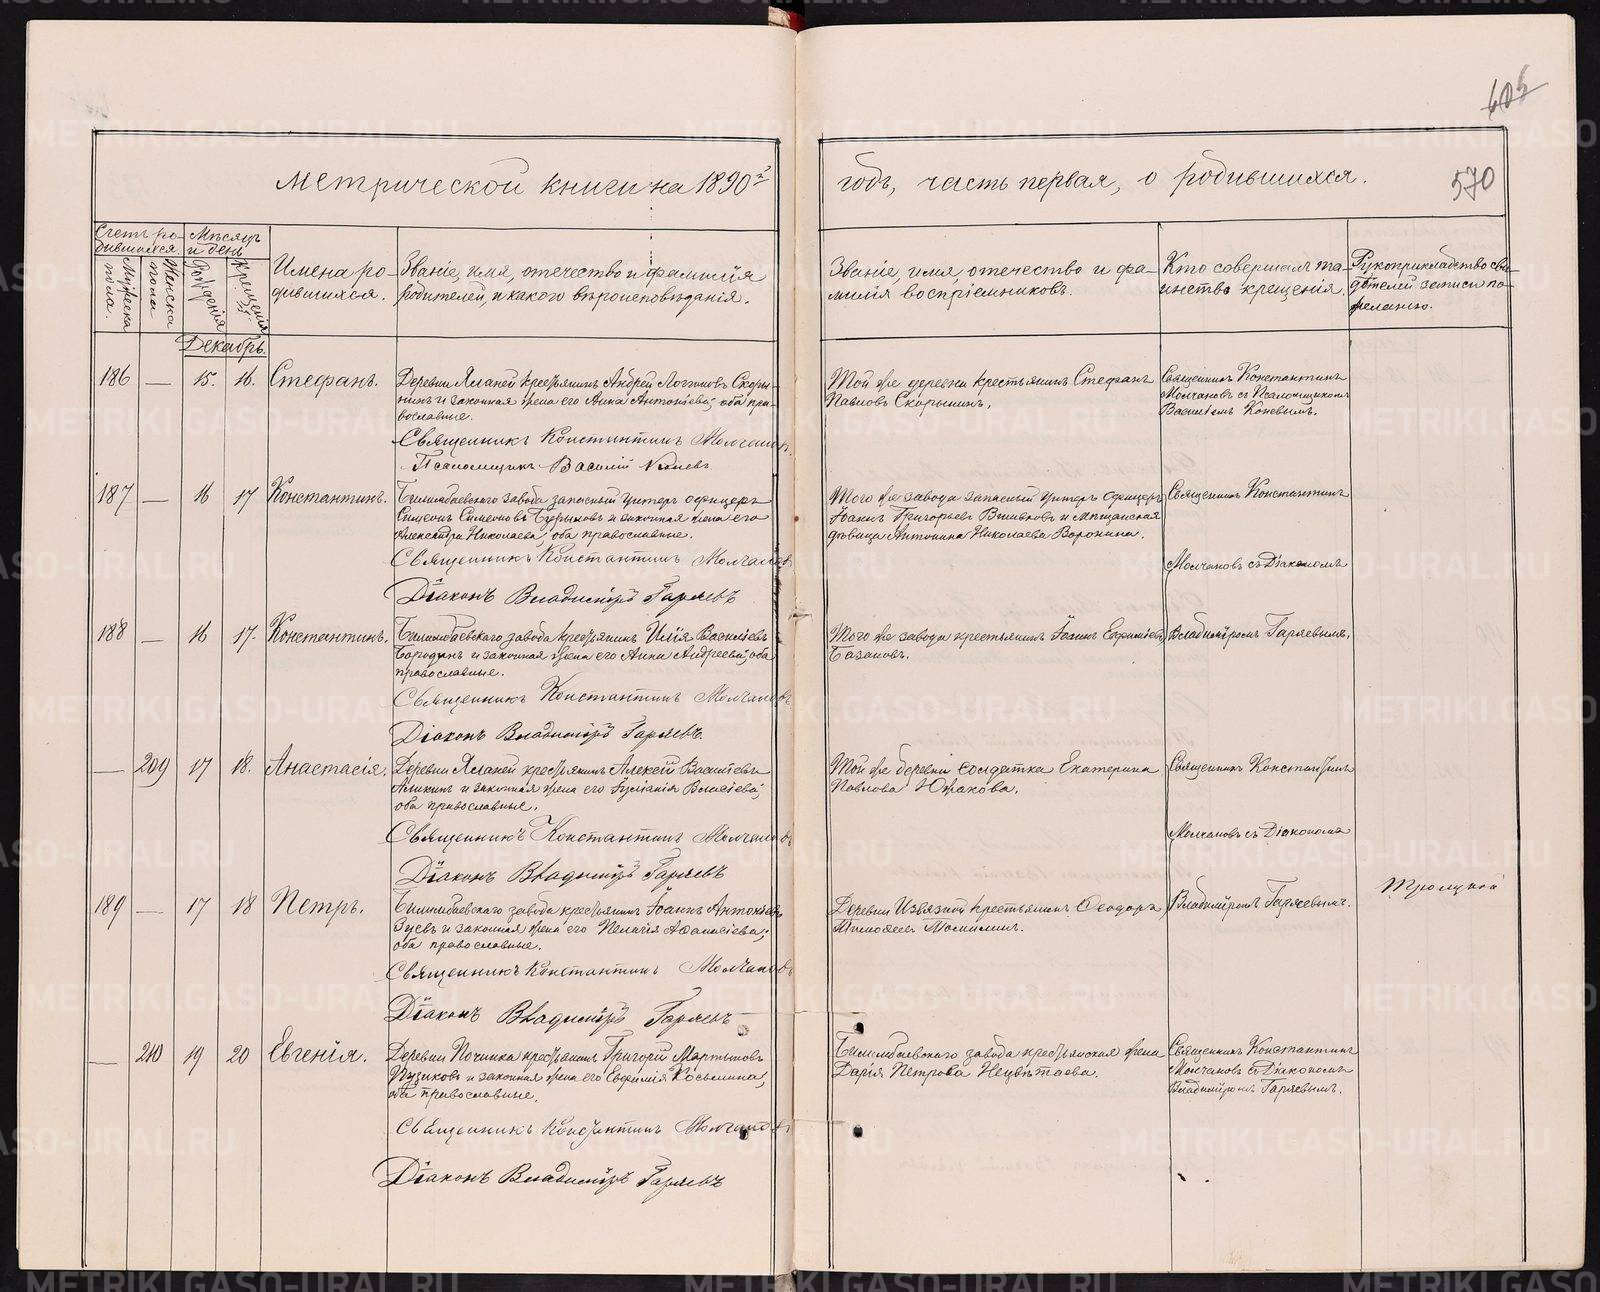 605
метрической книги на 1890й
годъ, часть первая, о родившихся.
570
Счетъ ро-
дившихся.
Мужеска
пола.
Женска
пола
Мѣсяцъ
и день
Рожденія
Крещенія
Имена ро-
дившихся.
Званіе, имя, отечество и фамилія
родителей, и какого вѣроисповѣданія.
Званіе, имя, отечество и фа-
милія воспріемниковъ.
Кто совершалъ та-
инство крещенія.
Рукоприкладство сви-
дѣтелей записи по
желанію.
Декабрь.
186 — 15. 16. Стефанъ.
Деревни Яланей крестьянинъ Андрей Логиновъ Скоры-
нинъ и законная жена его Анна Антоніева, оба пра-
вославные.
Священникъ Константинъ Молчановъ
Псаломщикъ Василій Коневъ
Той же деревни крестьянинъ Стефанъ
Павловъ Скорынинъ.
Священникъ Константинъ
Молчановъ съ Псаломщикомъ
Василіемъ Коневымъ.
187 — 16 17 Константинъ.
Билимбаевскаго завода запасный унтеръ офицеръ
Симеонъ Симеоновъ и законная жена его
Александра Николаева, оба православные.
Священникъ Константинъ Молчановъ
Діаконъ Владиміръ Гаряевъ
Того же завода запасный унтеръ офицеръ
Іоаннъ Григорьевъ Вшивковъ и мѣщанская
дѣвица Антонина Николаева Воронина.
Священникъ Константинъ
Молчановъ съ Діакономъ
188 — 16 17. Константинъ.
Билимбаевскаго завода крестьянинъ Илія Василіевъ
Бородинъ и законная жена его Анна Андреева, оба
православные.
Священникъ Константинъ Молчановъ
Діаконъ Владиміръ Гаряевъ.
Того же завода крестьянинъ Іоаннъ Евфиміевъ
Базановъ.
Владиміромъ Гаряевымъ.
— 209 17 18. Анастасія.
Деревни Яланей крестьянинъ Алексѣй Василіевъ
Аликинъ и законная жена его Іуліанія Власіева,
оба православные.
Священникъ Константинъ Молчановъ
Діаконъ Владиміръ Гаряевъ
Той же деревни солдатка Екатерина
Павлова Южакова.
Священникъ Константинъ
Молчановъ съ Діакономъ
189 — 17 18 Петръ.
Билимбаевскаго завода крестьянинъ Іоаннъ Антоніевъ
Гусевъ и законная жена его Пелагія Аѳанасіева,
оба православные.
Священникъ Константинъ Молчановъ
Діаконъ Владиміръ Гаряевъ
Деревни Извязной крестьянинъ Ѳеодоръ
Тимоѳеевъ Томилинъ.
Владиміромъ Гаряевымъ.
Троицкій
— 210 19 20 Евгенія.
Деревни Починка крестьянинъ Григорій Мартыновъ
Пузиковъ и законная жена его Евфимія Косьмина,
оба православные.
Священникъ Константинъ Молчановъ
Діаконъ Владиміръ Гаряевъ
Билимбаевскаго завода крестьянская жена
Дарія Петрова Нецвѣтаева.
Священникъ Константинъ
Молчановъ съ Діакономъ
Владиміромъ Гаряевымъ.
METRIKI.GASO-URAL.RU